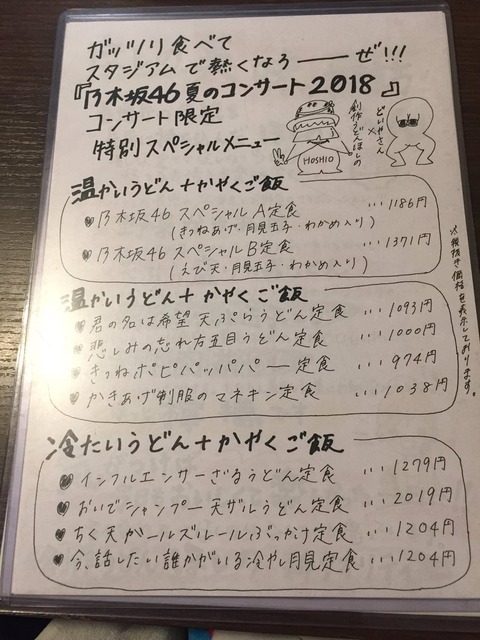 ガッツリ食べて
スタジアムで熱くなろーぜ!!!
『乃木坂46夏のコンサート2018』
コンサート限定
特別スペシャルメニュー
創作うどんほしの
×
どいやさん
HOSHIO
温かいうどん+かやくご飯
乃木坂46スペシャルA定食 ・・・1186円
(きつねあげ・月見玉子・わかめ入り)
乃木坂46スペシャルB定食 ・・・1371円
(えび天・月見玉子・わかめ入り)
※税抜き価格を表示しております。
温かいうどん+かやくご飯
君の名は希望天ぷらうどん定食 ・・・1093円
悲しみの忘れ方五目うどん定食 ・・・1000円
きつねポピパッパパー定食 ・・・974円
かきあげ制服のマネキン定食 ・・・1038円
冷たいうどん+かやくご飯
インフルエンサーざるうどん定食 ・・・1279円
おいでシャンプー天ザルうどん定食 ・・・2019円
ちく天ガールズルールぶっかけ定食 ・・・1204円
今、話したい誰かがいる冷やし月見定食 ・・・1204円